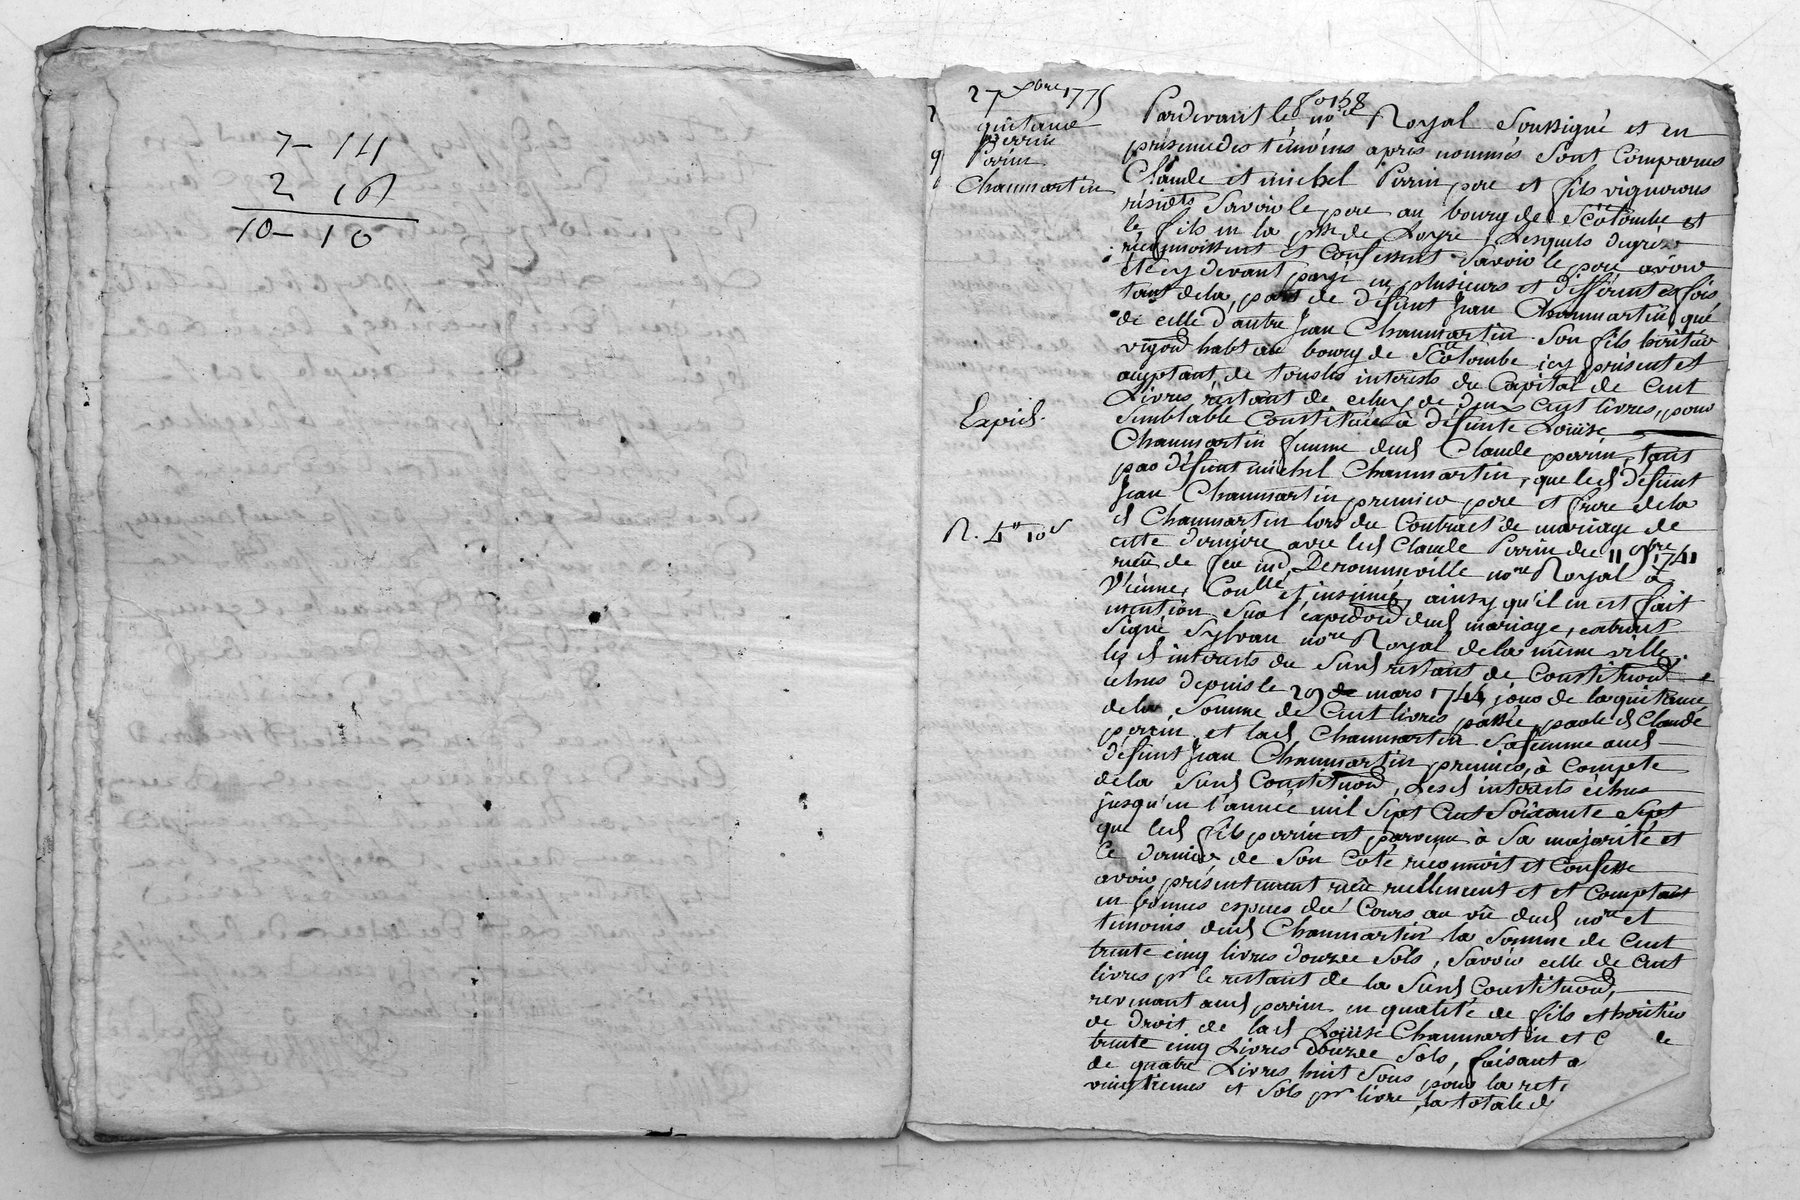 7 - 14
2 16
10 - 10
27 xbre 1775
quitance
Perrin
Perrin
Chaumartin
Expié.
R. 4tt 10s
fo 158
Pardevant le nore Royal Soussigné et en
présence des témoins après nommés Sont Comparus
Claude et michel Perrin pere et fils vignerons
résidts Savoir le pere au bourg de Ste Colombe et
le fils en la psse de Loyre, Lesquels de gré
reconnoissent et Confessent Savoir le pere avoir
été cy devant payé en plusieurs et différentes fois
tant de la part de défunt Jean Chaumartin que
de celle d'autre Jean Chaumartin Son fils héritier
vigon habt au bourg de Ste Colombe icy présent et
acceptant, de tous les interets du Capital de Cent
Livres restant de celuy de deux Cent livres, pour
Semblable Constituée à défunte Louise
Chaumartin femme dud Claude perrin, tant
par défunt michel Chaumartin, que led défunt
Jean Chaumartin premier pere et frere de la
d Chaumartin lors du Contract de mariage de
cette derniere avec led Claude Perrin du 11 9bre 1741
reçu de feu me Derommeville nore Royal à
Vienne, Conllé et insinué, ainsy qu'il en est fait
mention Sur l'expedion dud mariage, extrait
Signé Sylvan nore Royal de la même ville
les d interets du Sud restant de Constitution
échus depuis le 29 de mars 1744 jour de la quitance
de la Somme de Cent livres passée par le d Claude
perrin et lad Chaumartin Sa femme aud
défunt Jean Chaumartin premier, à Compte
de la Sud Constitution, Lesd interets échus
jusqu'en l'année mil Sept Cent Soixante Sept
que led fils perrin est parvenu à Sa majorité et
Ce dernier de Son Coté reconnoit et Confesse
avoir présentement reçu reellement et et Comptant
en bonnes especes du Cours au vû dud nore et
témoins dud Chaumartin la Somme de Cent
trente cinq livres douze Sols, Savoir celle de Cent
livres pr le restant de la Sud Constitution,
revenant aud perrin en qualité de fils et héritier
de droit de lad Louise Chaumartin et C de
trente cinq Livres douze Sols, faisant a
de quatre Livres huit Sous pour la ret
vingtiemes et Sols pr livre, la totale d